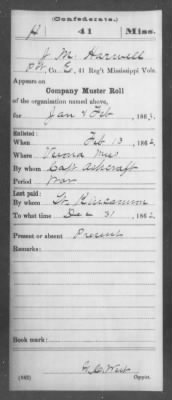 (Confederate.)
H 41 Miss.
J M Harwell
Pvt, Co. E, 41 Reg't Mississippi Vols.
Appears on
Company Muster Roll
of the organization named above,
for Jan & Feb, 1863.
Enlisted:
When Feb 13, 1862.
Where Verona Miss
By whom Capt Ashcraft
Period War
Last paid:
By whom
To what time Dec 31, 1862.
Present or absent Present
Remarks:
Book mark:
(642) Copyist.